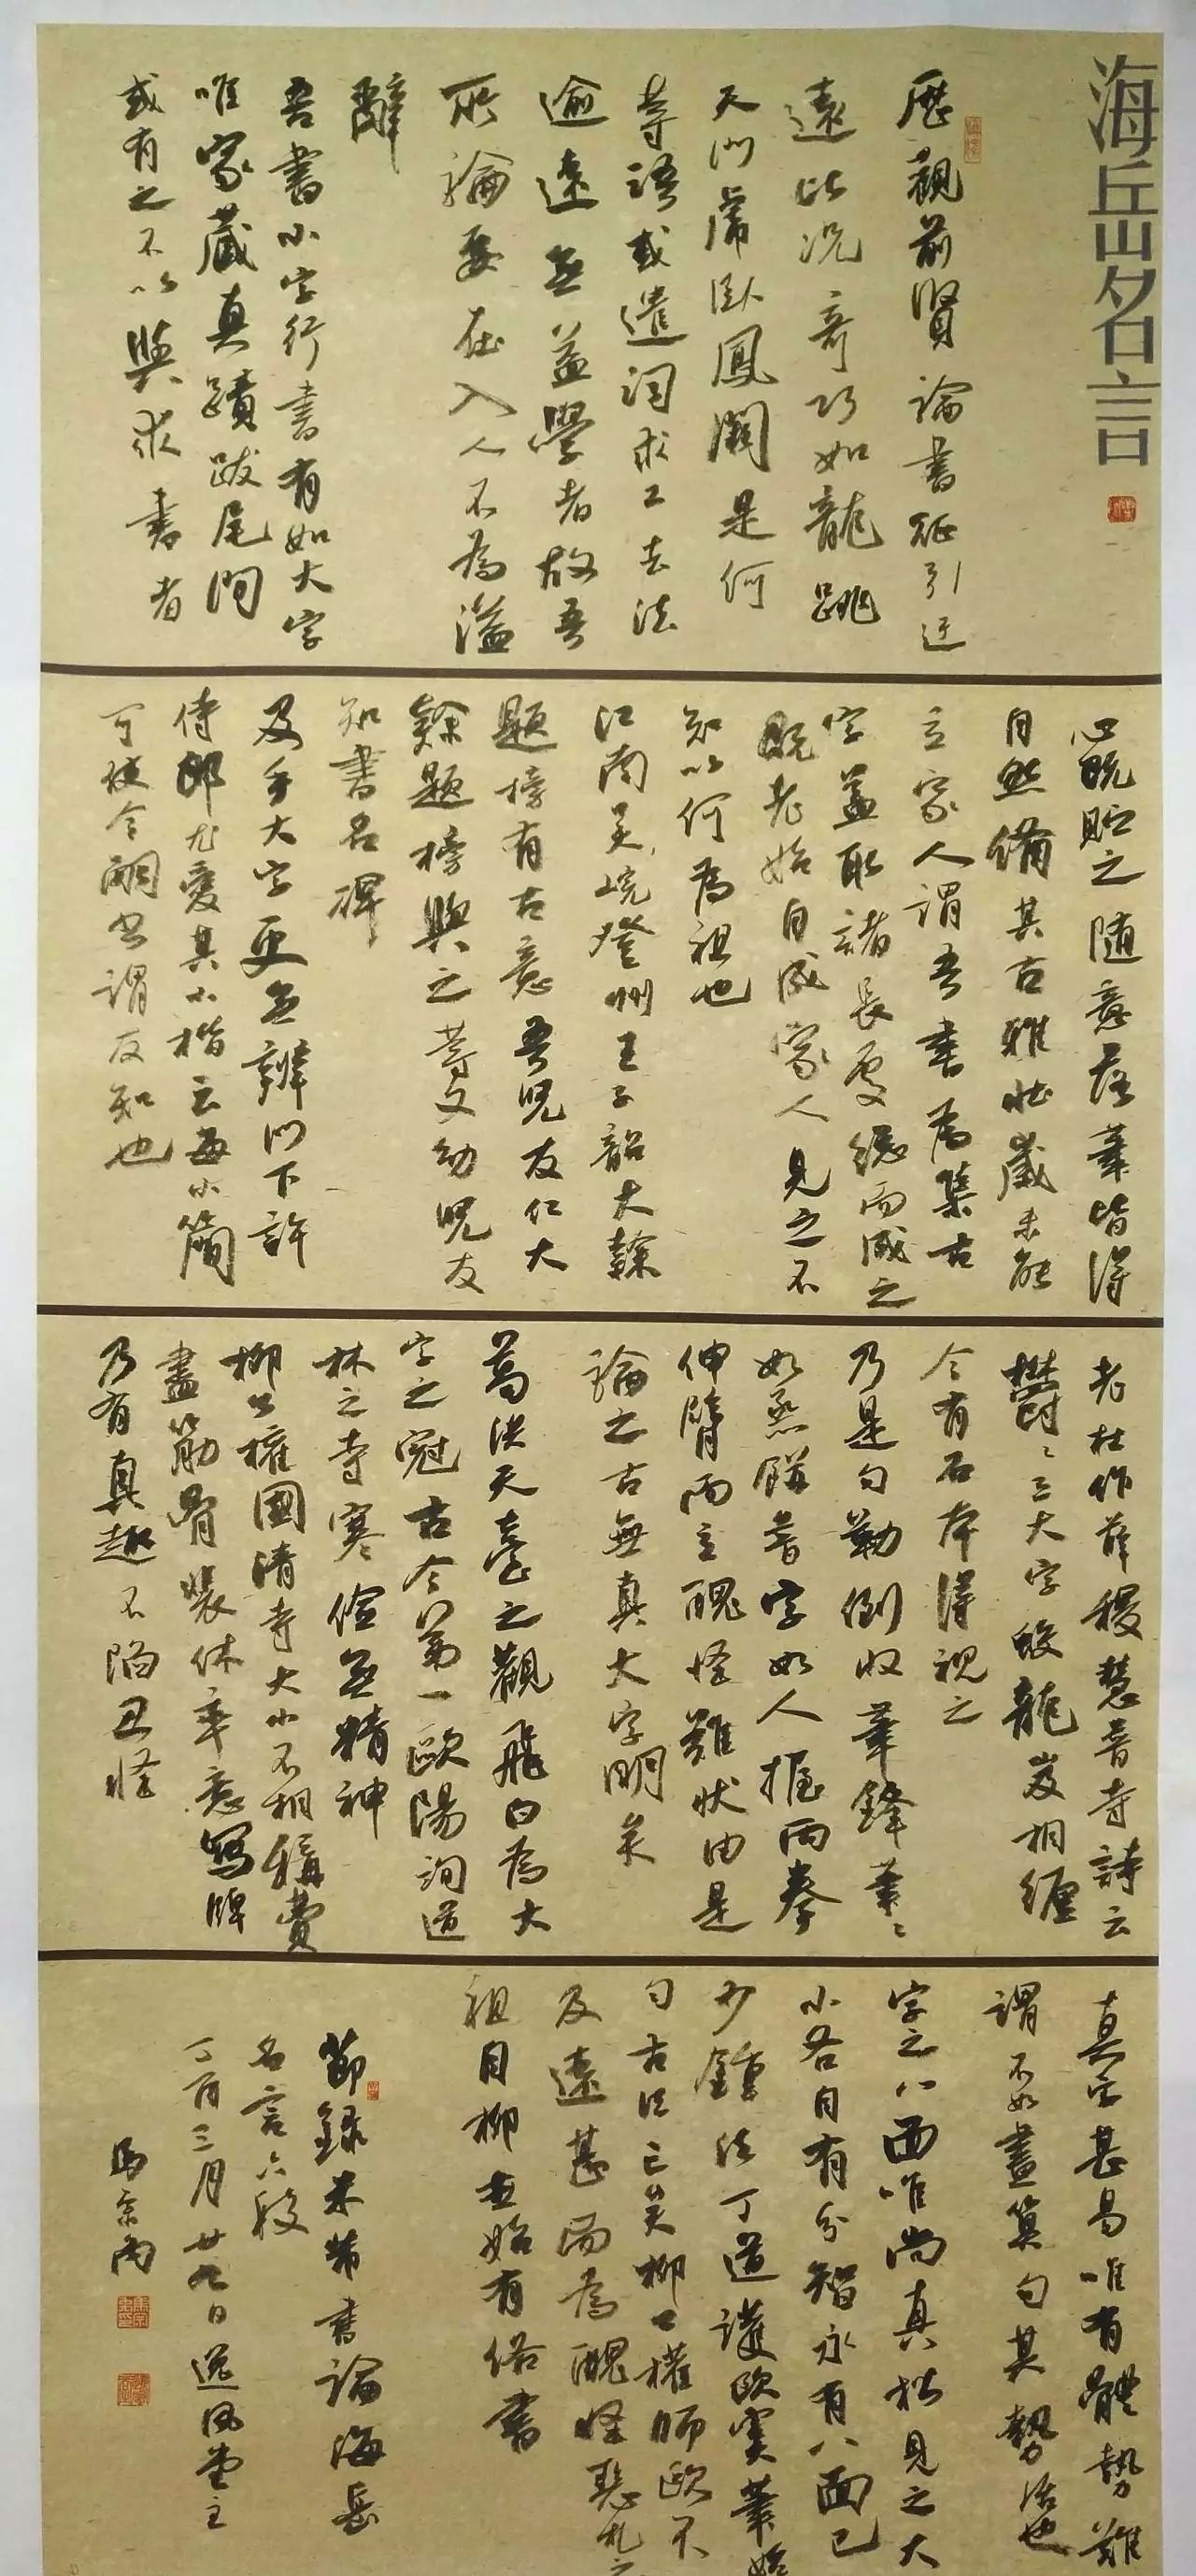 海岳名言
歷觀前賢論書征引迂
遠比況奇巧如龍跳
天門虎臥鳳闕是何
等語或遣詞求工去法
逾遠無益學者故吾
所論要在入人不為溢
辭
吾書小字行書有如大字
唯家藏真蹟跋尾間
或有之不以與求書者
心既貯之隨意落筆皆得
自然備其古雅壯歲未能
立家人謂吾書為集古
字蓋取諸長處總而成之
既老始自成家人見之不
知以何為祖也
江南吳峴登州王子韶大隸
題榜有古意吾兒友仁大
隸題榜與之等又幼兒友
知書名碑
及手大字更無辨門下許
侍郎尤愛其小楷云每小簡
可使令嗣書謂友知也
老杜作薛稷慧普寺詩云
鬱〻三大字蛟龍岌相纏
今有石本得視之
乃是勾勒倒收筆鋒筆〻
如蒸餅普字如人握兩拳
伸臂而立醜怪難狀由是
論之古無真大字明矣
葛洪天臺之觀飛白為大
字之冠古今第一歐陽詢道
林之寺寒儉無精神
柳公權國清寺大小不相稱費
盡筋骨裴休率意寫牌
乃有真趣不陷丑怪
真字甚易唯有體勢難
謂不如畫算勻其勢活也
字之八面唯尚真楷見之大
小各自有分智永有八面已
少鍾法丁道護歐虞筆始
勻古法亡矣柳公權師歐不
及遠甚而為醜怪惡札之
祖自柳世始有俗書
節錄米芾書論海岳
名言六段
丁酉三月廿九日逸風堂主
馬宗丙